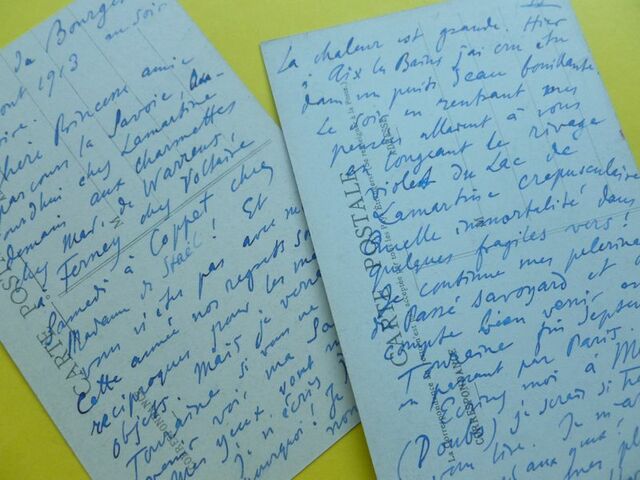 du Bourget
1913 au soir
Chère Princesse amie
parcours la Savoie,
chez Lamartine
demain aux charmettes
chez Mad. de Warrens,
Ferney chez Voltaire
Samedi à Coppet chez
Madame de Staël! Et
vous n'êtes pas avec
Cette année nos regrets
réciproques pour les
objets. Mais je
Touraine si vous ne
venir voir ma
Mes yeux vont
Je n'écris
pourquoi! Je
CARTE POSTALE
CORRESPONDANCE
M
La chaleur est grande. Hier
à Aix les Bains j'ai cru être
dans un puits d'eau bouillante.
Le soir en rentrant mes
pensées allaient à vous
longeant le rivage
violet du Lac de
Lamartine crepusculaire
quelle immortalité dans
quelques fragiles vers!
continue mes pelerina
du Passé Savoyard et
compte bien venir en
Touraine fin Sept
en passant par Paris.
Ecrivez moi à
(Doubs) je serai si
vous lire. Je
aux yeux
CARTE POSTALE
ADRESSE
M
CORRESPONDANCE